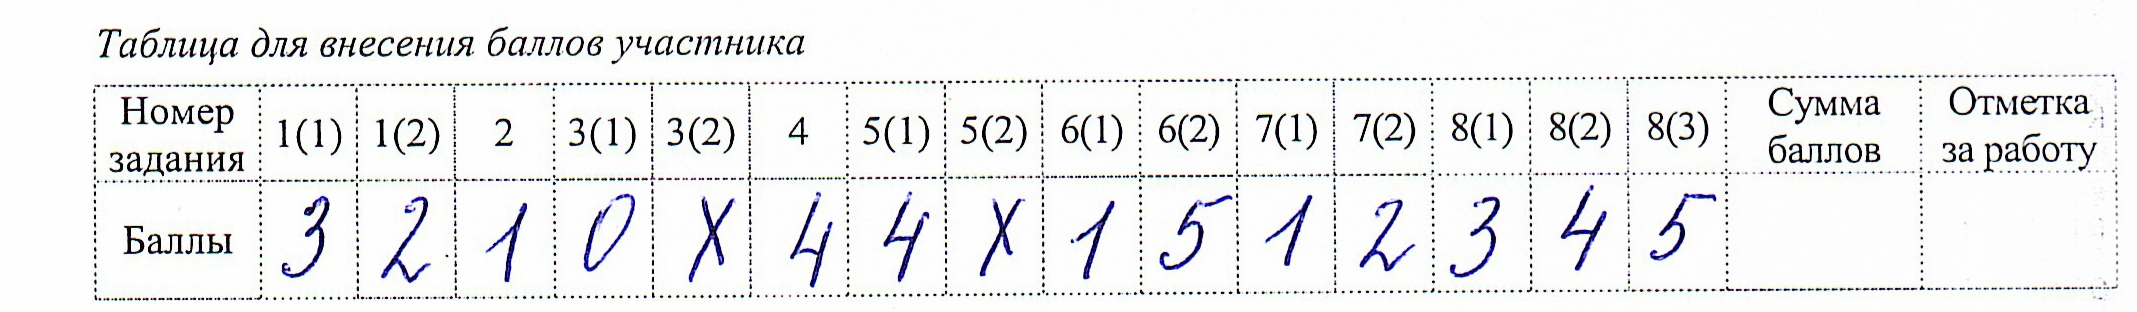 Таблица для внесения баллов участника
Номер задания 1(1) 1(2) 2 3(1) 3(2) 4 5(1) 5(2) 6(1) 6(2) 7(1) 7(2) 8(1) 8(2) 8(3) Сумма баллов Отметка за работу
Баллы 3 2 1 0 X 4 4 X 1 5 1 2 3 4 5